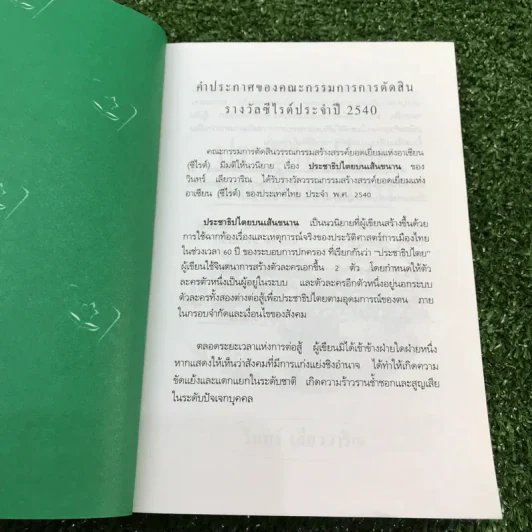 คำประกาศของคณะกรรมการการตัดสิน
รางวัลซีไรต์ประจำปี 2540
คณะกรรมการตัดสินวรรณกรรมสร้างสรรค์ยอดเยี่ยมแห่งอาเซียน
(ซีไรต์) มีมติให้นวนิยาย เรื่อง ประชาธิปไตยบนเส้นขนาน ของ
วินทร์ เลียววาริณ ได้รับรางวัลวรรณกรรมสร้างสรรค์ยอดเยี่ยมแห่ง
อาเซียน (ซีไรต์) ของประเทศไทย ประจำ พ.ศ. 2540
ประชาธิปไตยบนเส้นขนาน เป็นนวนิยายที่ผู้เขียนสร้างขึ้นด้วย
การใช้ฉากท้องเรื่องและเหตุการณ์จริงของประวัติศาสตร์การเมืองไทย
ในช่วงเวลา 60 ปี ของระบอบการปกครอง ที่เรียกกันว่า "ประชาธิปไตย"
ผู้เขียนใช้จินตนาการสร้างตัวละครเอกขึ้น 2 ตัว โดยกำหนดให้ตัว
ละครตัวหนึ่งเป็นผู้อยู่ในระบบ และตัวละครอีกตัวหนึ่งอยู่นอกระบบ
ตัวละครทั้งสองต่างต่อสู้เพื่อประชาธิปไตยตามอุดมการณ์ของตน ภาย
ในกรอบจำกัดและเงื่อนไขของสังคม
ตลอดระยะเวลาแห่งการต่อสู้ ผู้เขียนมิได้เข้าข้างฝ่ายใดฝ่ายหนึ่ง
หากแสดงให้เห็นว่าสังคมที่มีการแก่งแย่งชิงอำนาจ ได้ทำให้เกิดความ
ขัดแย้งและแตกแยกในระดับชาติ เกิดความร้าวรานช้ำชอกและสูญเสีย
ในระดับปัจเจกบุคคล